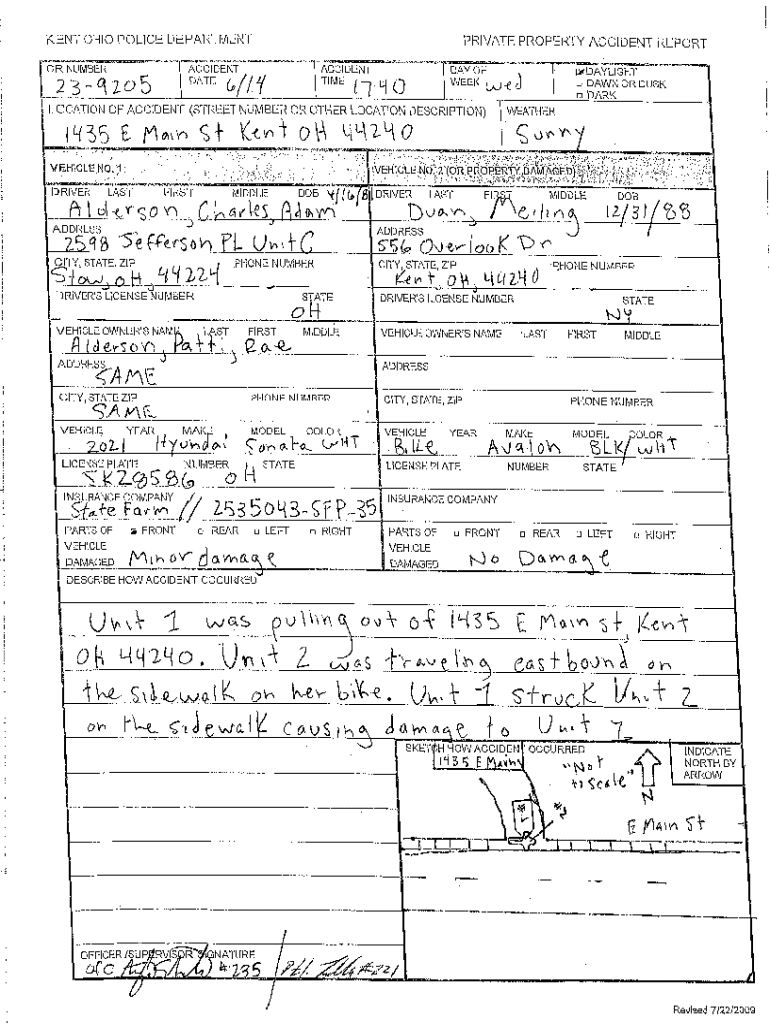 KENT OHIO POLICE DEPARTMENT PRIVATE PROPERTY ACCIDENT REPORT
CR NUMBER ACCIDENT ACCIDENT DAY OF DAYLIGHT
23-9205 DATE 6/14 TIME 1740 WEEK wed DAWN OR DUSK
DARK
LOCATION OF ACCIDENT (STREET NUMBER OR OTHER LOCATION DESCRIPTION) WEATHER
1435 E Main St Kent OH 44240 Sunny
VEHICLE NO. 1: VEHICLE NO. 2 (OR PROPERTY DAMAGED)
DRIVER LAST FIRST MIDDLE DOB DRIVER LAST FIRST MIDDLE DOB
Alderson, Charles, Adam Duan, Meiling 12/31/88
ADDRESS ADDRESS
2598 Jefferson PL Unit C 556 Overlook Dr
CITY, STATE, ZIP PHONE NUMBER CITY, STATE, ZIP PHONE NUMBER
Stow, OH, 44224 Kent, OH, 44240
DRIVER'S LICENSE NUMBER STATE DRIVER'S LICENSE NUMBER STATE
OH NY
VEHICLE OWNER'S NAME LAST FIRST MIDDLE VEHICLE OWNER'S NAME LAST FIRST MIDDLE
Alderson, Patti, Rae
ADDRESS ADDRESS
SAME
CITY, STATE ZIP PHONE NUMBER CITY, STATE, ZIP PHONE NUMBER
SAME
VEHICLE YEAR MAKE MODEL COLOR VEHICLE YEAR MAKE MODEL COLOR
2021 Hyundai Sonata WHT Bike Avalon BLK/WHT
LICENSE PLATE NUMBER STATE LICENSE PLATE NUMBER STATE
JK28586 OH
INSURANCE COMPANY INSURANCE COMPANY
State Farm // 2535043-SFP-35
PARTS OF FRONT REAR LEFT RIGHT PARTS OF FRONT REAR LEFT RIGHT
VEHICLE VEHICLE
DAMAGED Minor damage DAMAGED No Damage
DESCRIBE HOW ACCIDENT OCCURRED
Unit 1 was pulling out of 1435 E Main st, Kent
OH 44240. Unit 2 was traveling eastbound on
the sidewalk on her bike. Unit 1 struck Unit 2
on the sidewalk causing damage to Unit
SKETCH HOW ACCIDENT OCCURRED INDICATE
1435 E Main NORTH BY
"Not ARROW
to scale"
N
E Main St
OFFICER/SUPERVISOR SIGNATURE
#235 #221
Revised 7/22/2009